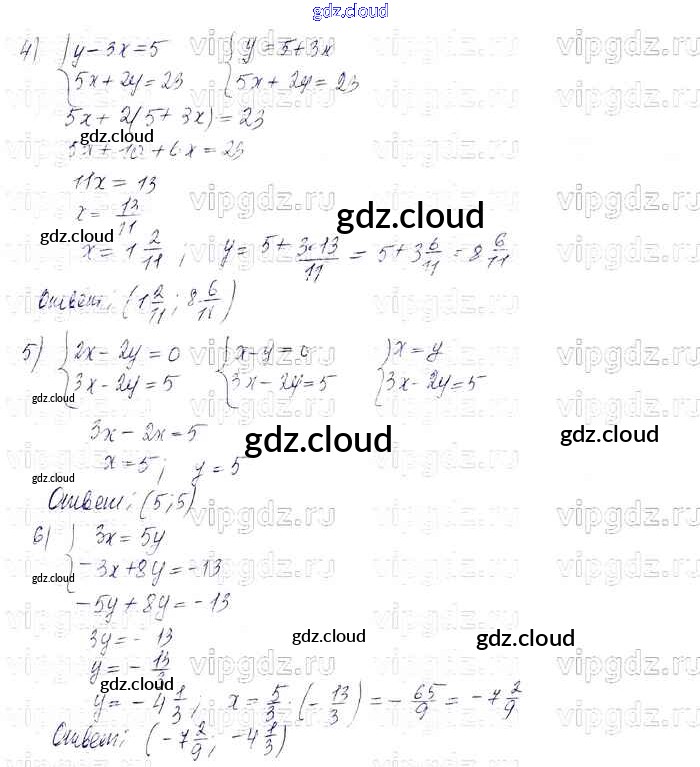 gdz.cloud
4) { y - 3x = 5 { y = 5 + 3x
{ 5x + 2y = 23 { 5x + 2y = 23
5x + 2(5 + 3x) = 23
gdz.cloud
5x + 10 + 6x = 23
11x = 13
x = 13/11
gdz.cloud
gdz.cloud
x = 1 2/11 ; y = 5 + 3·13/11 = 5 + 3 6/11 = 8 6/11
Ответ: (1 2/11 ; 8 6/11)
5) { 2x - 2y = 0 { x - y = 0 { x = y
{ 3x - 2y = 5 { 3x - 2y = 5 { 3x - 2y = 5
gdz.cloud
3x - 2x = 5
gdz.cloud
gdz.cloud
x = 5; y = 5
gdz.cloud
Ответ: (5; 5)
6) { 3x = 5y
{ -3x + 8y = -13
gdz.cloud
-5y + 8y = -13
3y = -13
gdz.cloud
gdz.cloud
y = - 13/3
gdz.cloud
y = -4 1/3 ; x = 5/3 · (- 13/3) = - 65/9 = -7 2/9
Ответ: (-7 2/9 ; -4 1/3)
vipgdz.ru